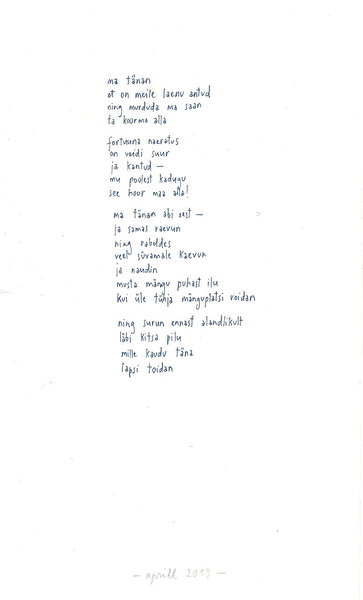 ma tänan
et on meile laenu antud
ning murduda ma saan
ta koorma alla
fortuuna naeratus
on veidi suur
ja kantud —
mu poolest kadugu
see hoor maa alla!
ma tänan abi eest —
ja samas raevun
ning rabeldes
veel sügavamale kaevun
ja naudin
musta mängu puhast ilu
kui üle tühja mänguplatsi roidan
ning surun ennast alandlikult
läbi kitsa pilu
mille kaudu täna
lapsi toidan
— aprill 2013 —